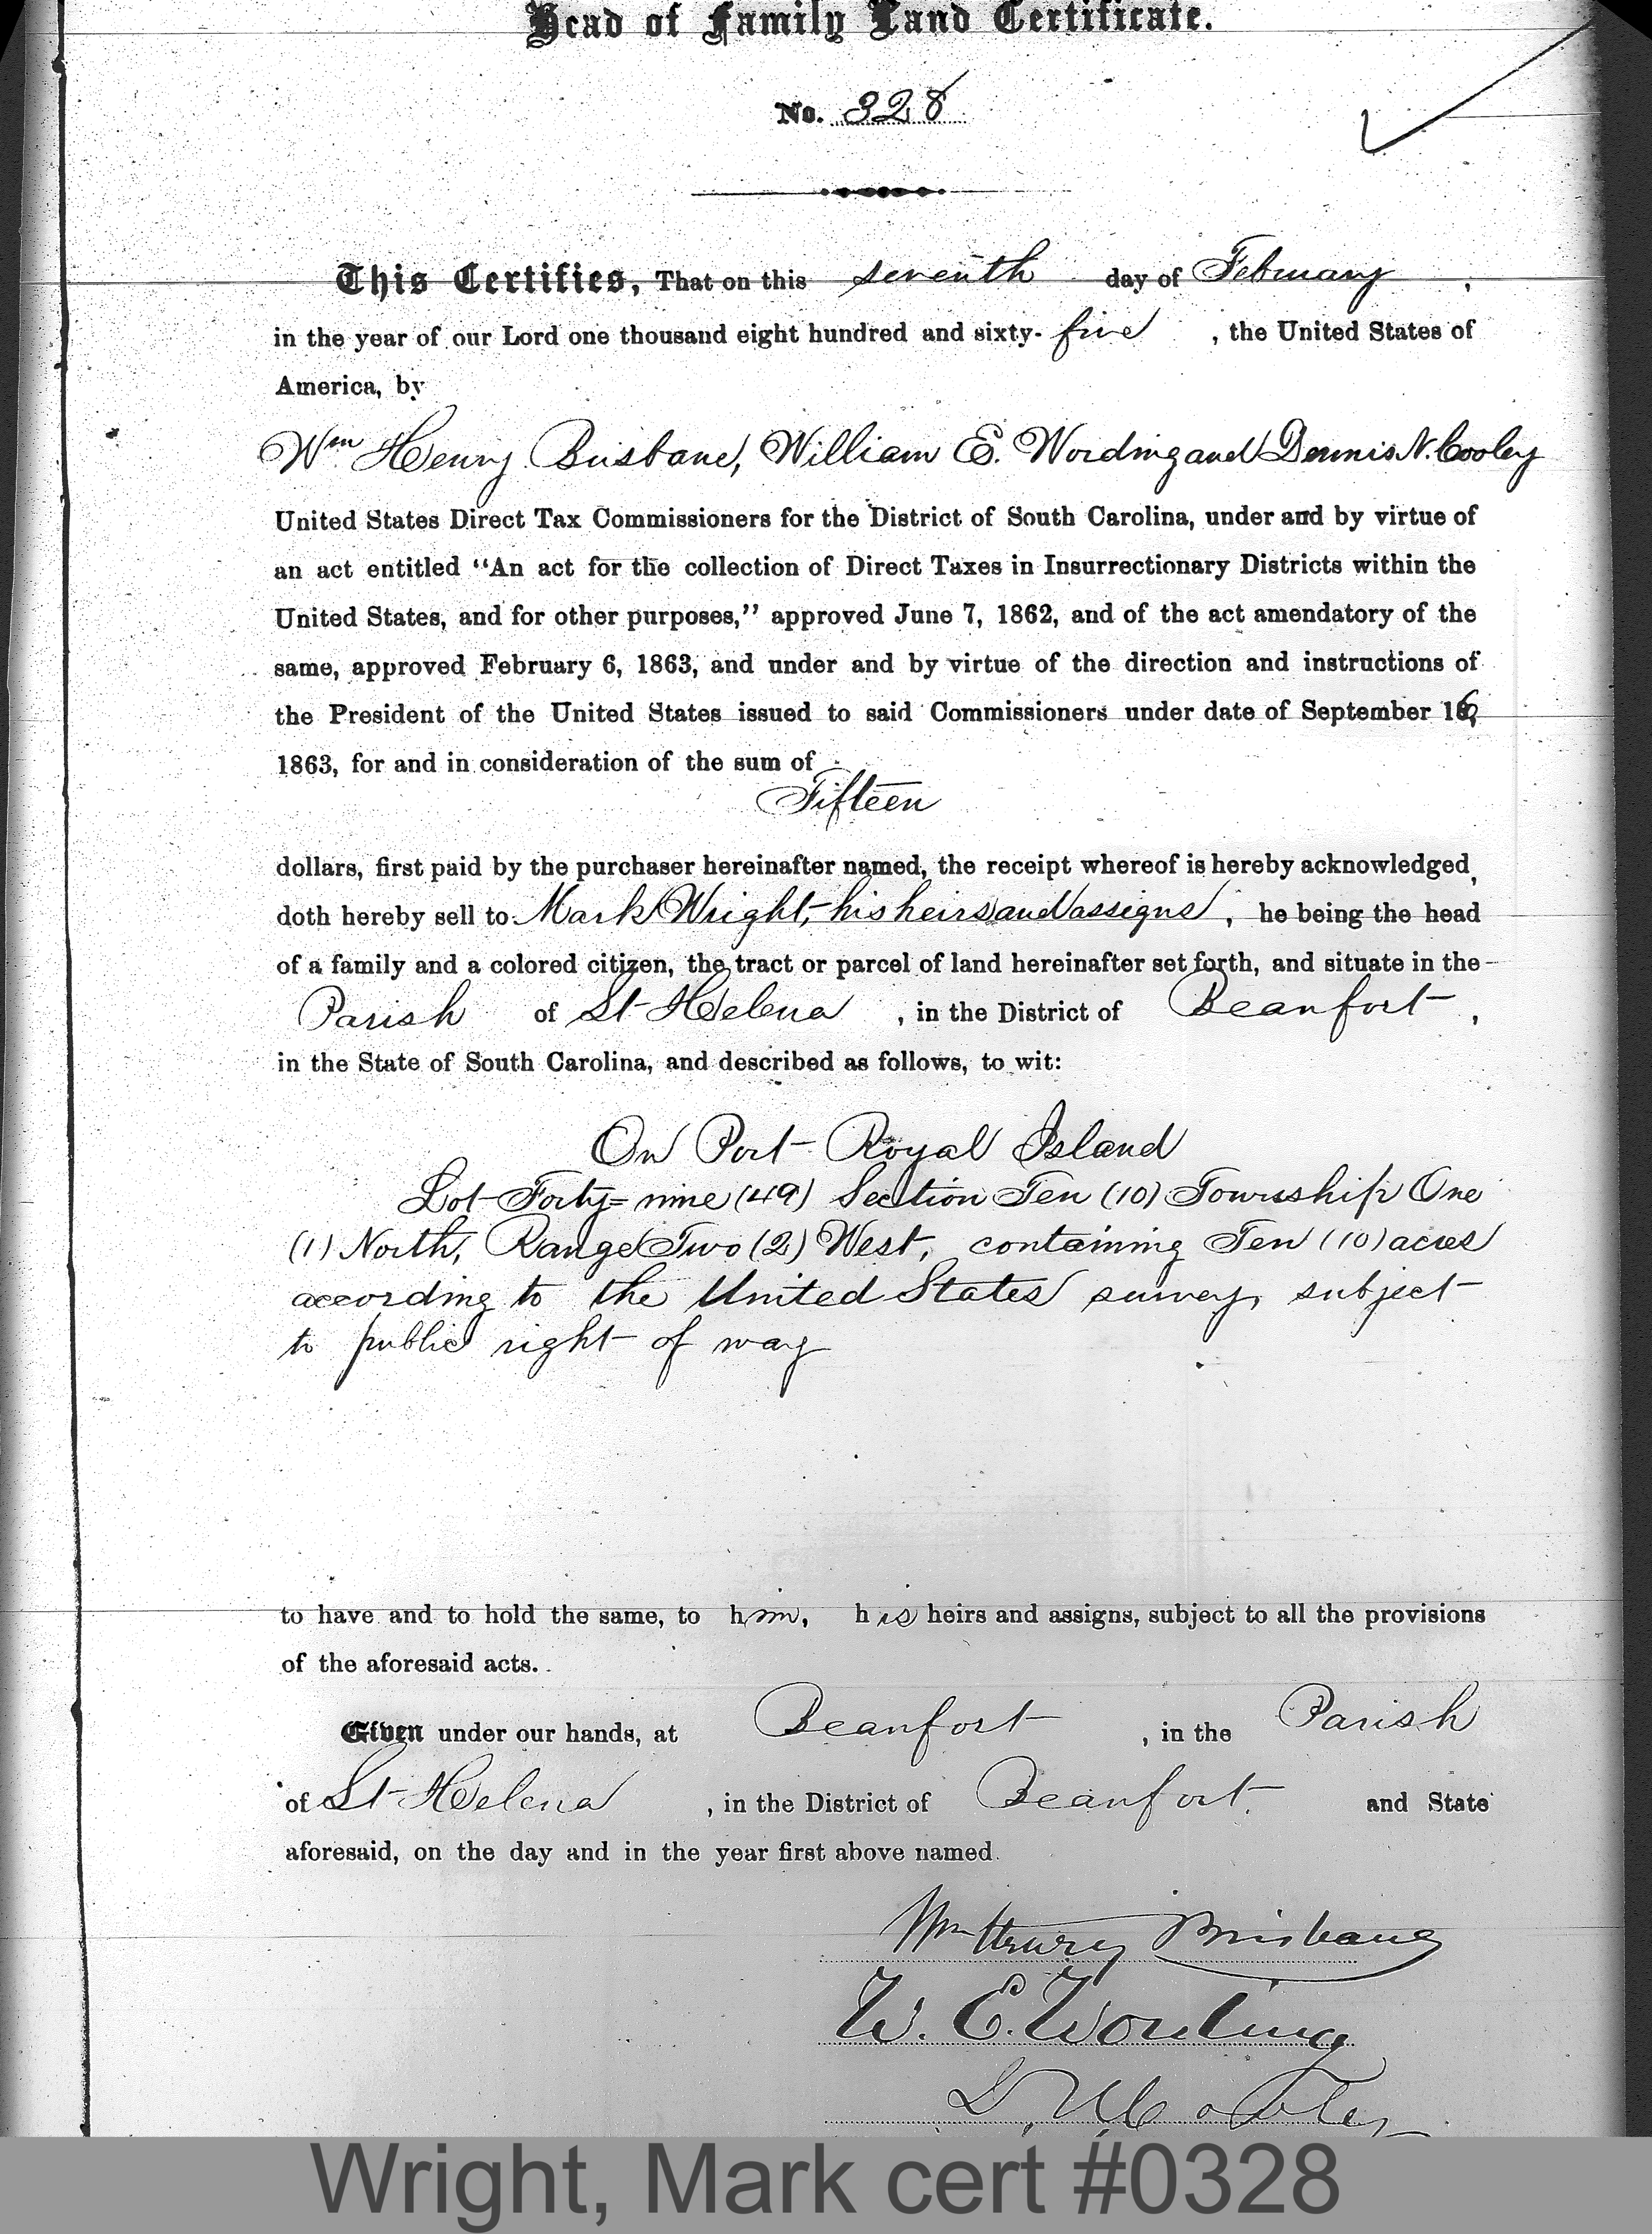 Head of Family Land Certificate.
No. 328
This Certifies, That on this seventh day of February,
in the year of our Lord one thousand eight hundred and sixty-five, the United States of
America, by
Wm Henry Brisbane, William E. Wording and Dennis N. Cooley
United States Direct Tax Commissioners for the District of South Carolina, under and by virtue of
an act entitled "An act for the collection of Direct Taxes in Insurrectionary Districts within the
United States, and for other purposes," approved June 7, 1862, and of the act amendatory of the
same, approved February 6, 1863, and under and by virtue of the direction and instructions of
the President of the United States issued to said Commissioners under date of September 16,
1863, for and in consideration of the sum of
Fifteen
dollars, first paid by the purchaser hereinafter named, the receipt whereof is hereby acknowledged,
doth hereby sell to Mark Wright, his heirs and assigns, he being the head
of a family and a colored citizen, the tract or parcel of land hereinafter set forth, and situate in the
Parish of St Helena, in the District of Beaufort,
in the State of South Carolina, and described as follows, to wit:
On Port Royal Island
Lot Forty=nine (49) Section Ten (10) Township One
(1) North, Range Two (2) West, containing Ten (10) acres
according to the United States survey, subject
to public right of way
to have and to hold the same, to him, his heirs and assigns, subject to all the provisions
of the aforesaid acts.
Given under our hands, at Beaufort, in the Parish
of St Helena, in the District of Beaufort. and State
aforesaid, on the day and in the year first above named.
Wm Henry Brisbane
W. E. Wording
D. N. Cooley
Wright, Mark cert #0328